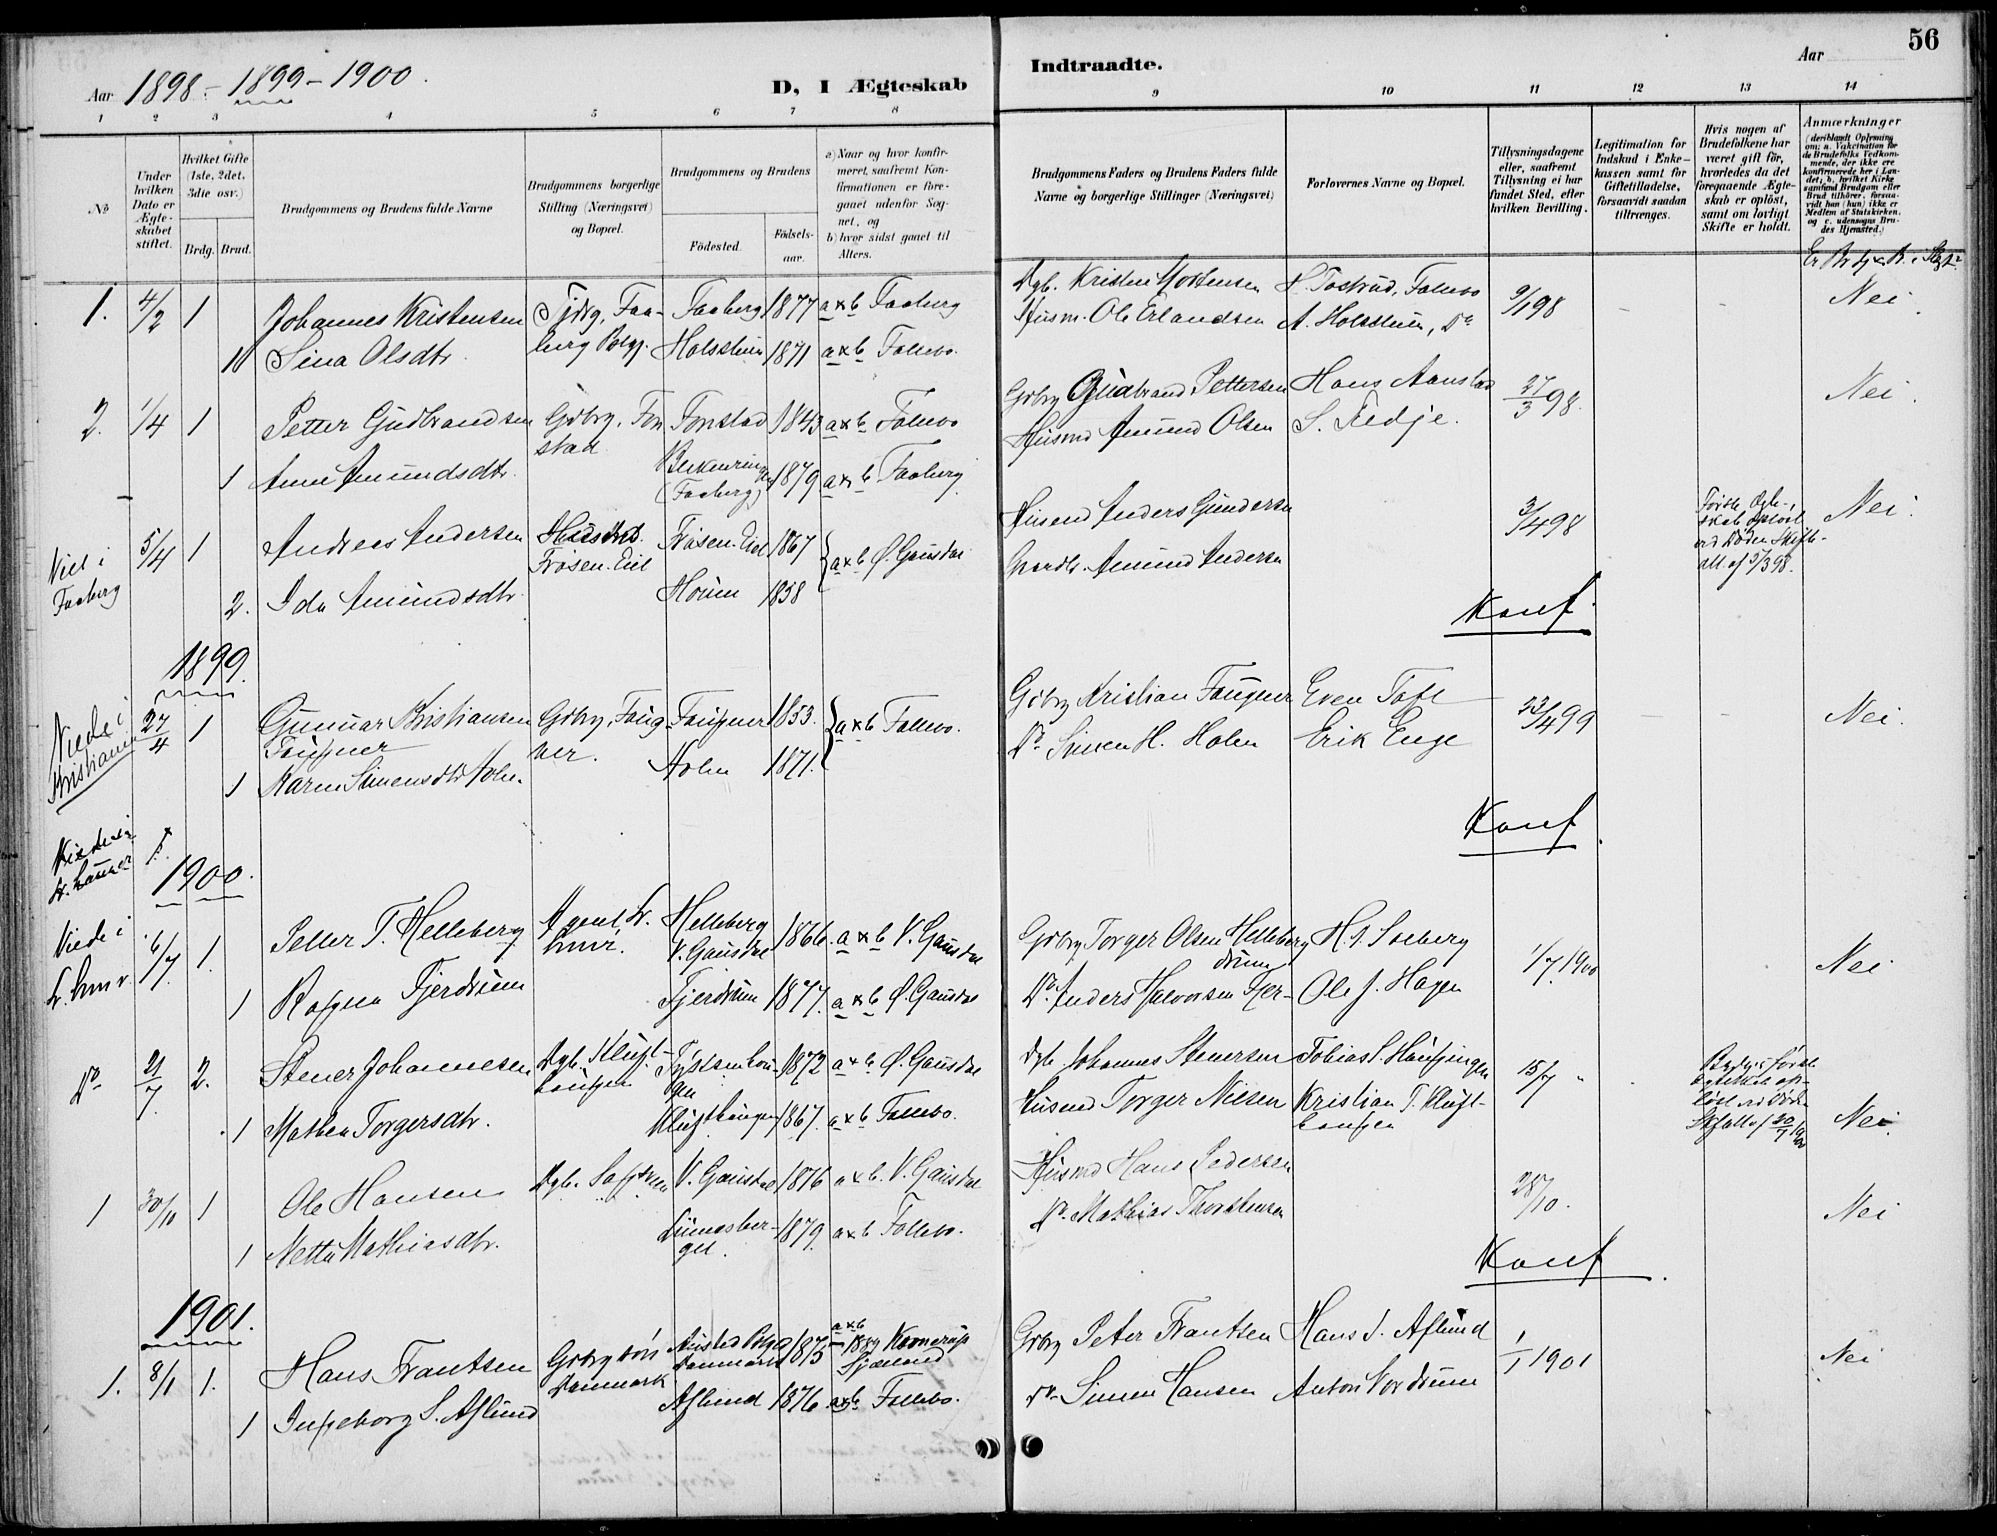 Aar 1898 - 1899 - 1900.
D, I Ægteskab
Indtraadte.
Aar
56
1 2 3 4 5 6 7 8 9 10 11 12 13 14
No
Under hvilken Dato er Ægteskabet stiftet.
Hvilket Gifte (1ste, 2det, 3die osv.)
Brdg. Brud.
Brudgommens og Brudens fulde Navne
Brudgommens borgerlige Stilling (Næringsvei) og Bopæl.
Brudgommens og Brudens
Fødested.
Fødselsaar.
a) Naar og hvor konfirmeret, saafremt Konfirmationen er foregaaet udenfor Sognet, og
b) hvor sidst gaaet til Alters.
Brudgommens Faders og Brudens Faders fulde Navne og borgerlige Stillinger (Næringsvei)
Forlovernes Navne og Bopæl.
Tillysningsdagene eller, saafremt Tillysning ei har fundet Sted, efter hvilken Bevilling.
Legitimation for Indskud i Enkekassen samt for Giftetilladelse, forsaavidt saadan tiltrænges.
Hvis nogen af Brudefolkene har været gift før, hvorledes da det foregaaende Ægteskab er opløst, samt om lovligt Skifte er holdt.
Anmærkninger (deriblandt Oplysning om: a. Vakcination for de Brudefolks Vedkommende, der ikke ere konfirmerede her i Landet; b. hvilket Kirkesamfund Brudgom eller Brud tilhører, forsaavidt han (hun) ikke er Medlem af Statskirken, og c. udensogns Brudes Hjemsted.)
1. 4/2 1 Johannes Kristensen Faaberg 1877 a & b Faaberg Dgb. Kristen Mortensen H. Tostrud, Follebo 9/1 98 Nei.
1 Sina Olsdtr. Holsthun 1871 a & b Follebo. Husm. Ole Erlandsen A. Holsthun, Do
2. 1/4 1 Petter Gudbrandsen Gdbrg, Fonstad Fonstad 1843 a & b Follebo Gdbrg Gudbrand Pettersen Hans Aanstad 27/3 98. Nei.
1 Anne Amundsdtr. (Faaberg) 1879 a & b Faaberg Husmd Amund Olsen S. Tredje.
Viet i Faaberg 5/4 1 Andreas Andersen Husmd. Frøsen. Eiet Frøsen. Eiet 1867 a & b Ø. Gausdal Husmd Anders Gundersen 3/4 98 Første Ægteskab opløst ved Døden Skifteatt. af 5/3 98. Nei.
2. Ida Amundsdtr. 1858 Gaardb. Amund Andersen
Konf.
1899.
Viede i Kristiania 27/4 1 Gunnar Kristiansen Faugner Gdbrg, Faugner. Faugner 1853. a & b Follebo. Gdbrg Kristian Faugner Even Toft 23/4 99 Nei.
1 Karen Simensdtr Holen. Holen 1871. Do Simen H. Holen Erik Enge
Konf.
1900.
Viede i 6/7 1. Petter T. Helleberg Agent, Helleberg V. Gausdal 1866. a & b V. Gausdal Gdbrg Torger Olsen Helleberg H. S. Solberg 1/7 1900 Nei
1 Ragna Fjerdrum Fjerdrum 1877. a & b Ø. Gausdal Do. Anders Halvorsen Fjerdrum Ole J. Hagen
Do 21/7. 2. Stener Johannesen Dgb. 1872 a & b Ø. Gausdal Dgb. Johannes Stenersen 15/7 Nei
1 Mathea Torgersdtr. 1867. a & b Follebo. Husmd Torger Nilsen
1 30/10 1 Ole Hansen Dgb. V. Gausdal 1876 a & b. V. Gausdal Husmd Hans Pedersen 28/10. Nei
1 Netta Mathiasdtr. 1879 a & b Follebo. Do. Mathias Thorstensen
Konf.
1901.
1. 8/1 1. Hans Frantsen Gdbrgsøn Danmark Danmark 1875 a & b 1889 Sjælland Gdbrg Peter Frantsen Hans S. Aflund 1/1 1901 Nei
1 Ingeborg S. Aflund Aflund 1876 a & b Follebo. Do. Simen Hansen Anton Nordrum